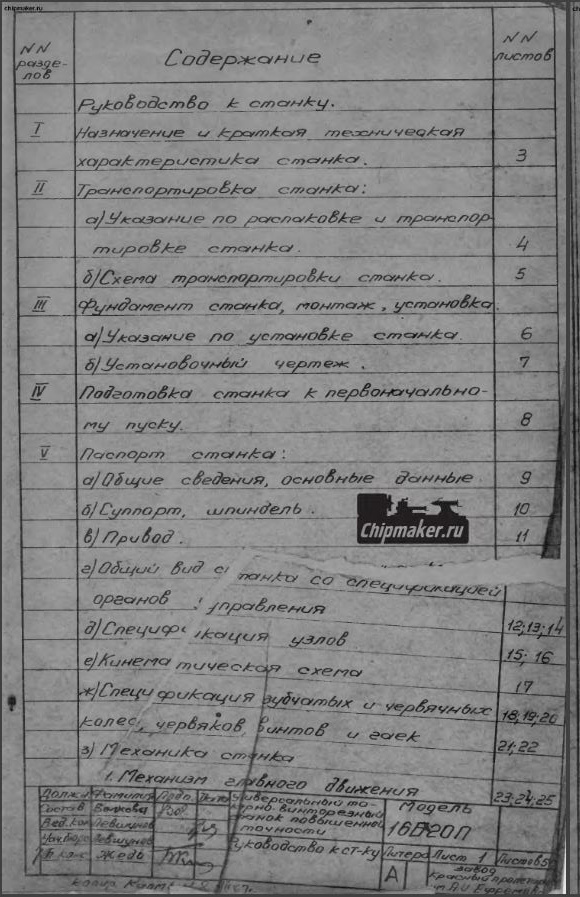 chipmaker.ru
NN разде- лов
Содержание
NN листов
Руководство к станку.
I Назначение и краткая техническая
характеристика станка. 3
II Транспортировка станка:
а) Указание по распаковке и транспор-
тировке станка. 4
б) Схема транспортировки станка. 5
III Фундамент станка, монтаж, установка.
а) Указание по установке станка. 6
б) Установочный чертеж. 7
IV Подготовка станка к первоначально-
му пуску. 8
V Паспорт станка:
а) Общие сведения, основные данные 9
б) Суппорт, шпиндель. 10
Chipmaker.ru
в) Привод. 11
г) Общий вид станка со спецификацией
органов управления 12;13;14
д) Спецификация узлов 15; 16
е) Кинематическая схема 17
ж) Спецификация зубчатых и червячных 18;19;20
колес, червяков, винтов и гаек 21;22
з) Механика станка
1. Механизм главного движения 23;24;25
Должн Фамилия Подп. Дата
Универсальный то-
карно-винторезный
станок повышенной
точности
Модель
Состав Волкова
Вед.кон Левшунов
Нач.бюро Левшунов
Гл.кон. Жедь
Руководство к ст-ку
Литера Лист 1 Листов
А
завод